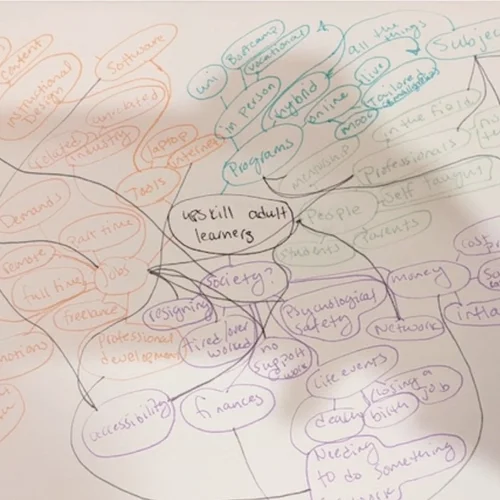 content
Instructional
Design
Software
related
industry
laptop
internet
Tools
Demands
Part time
remote
Jobs
full time
freelance
Professional
development
uni
Bootcamp
vocational
in person
hybrid
online
live
all the
things
mooc
Programs
Subjec
in the field
mentorship
Professionals
Self taught
People
Students
Parents
upskill adult
learners
Society?
resigning
tired/over
worked
no
support
@ work
Psychological
safety
money
cost
infla
Network
accessibility
finances
life events
death
birth
losing a
job
Needing
to do something